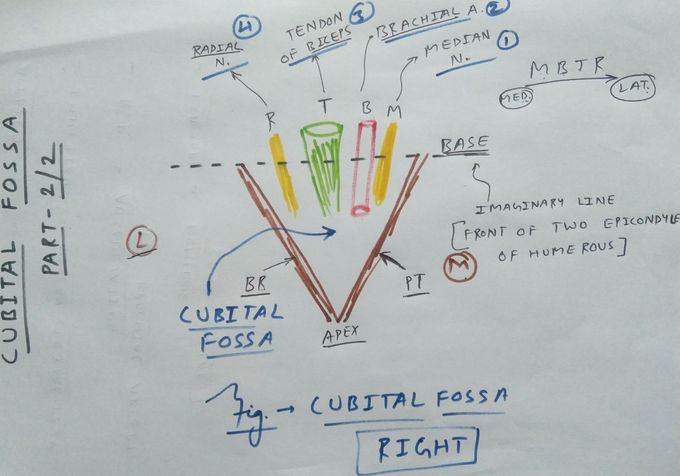 CUBITAL FOSSA
PART-2/2
4
RADIAL
N.
TENDON 3
OF BICEPS
BRACHIAL A. 2
MEDIAN 1
N.
MBTR
MED.
LAT.
R T B M
BASE
IMAGINARY LINE
[FRONT OF TWO EPICONDYLE
OF HUMEROUS]
L
M
BR
PT
CUBITAL
FOSSA
APEX
Fig. → CUBITAL FOSSA
RIGHT